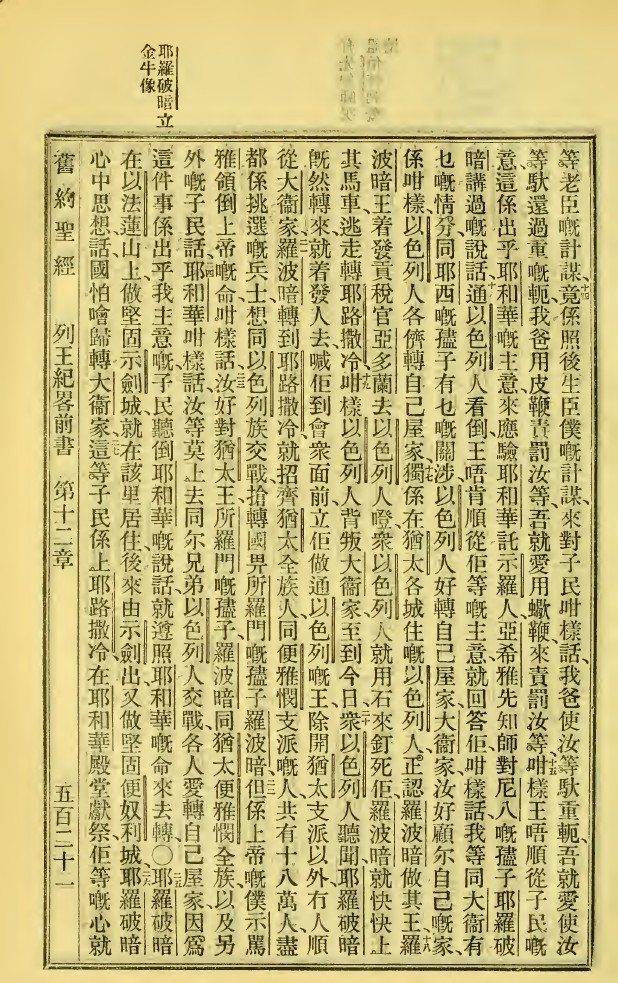 耶羅破暗立
金牛像
等老臣嘅計謀、竟係照後生臣僕嘅計謀、來對子民咁樣話、我爸使汝等馱重軛、吾就愛使汝
等馱還過重嘅軛、我爸用皮鞭責罰汝等、吾就愛用蠍鞭來責罰汝等、咁樣王唔順從子民嘅
意、這係出乎耶和華嘅主意、來應驗耶和華託示羅人亞希雅先知師對尼八嘅孻子耶羅破
暗講過嘅說話、通以色列人看倒王唔肯順從佢等嘅主意、就回答佢咁樣話、我等同大衛有
乜嘅情分、同耶西嘅孻子有乜嘅關涉、以色列人好轉自己屋家、大衛家汝好顧尔自己嘅家、
係咁樣以色列人各儕轉自己屋家、獨係在猶太各城住嘅以色列人、正認羅波暗做其王、羅
波暗王着發貢稅官亞多蘭去以色列人噔、眾以色列人就用石來釘死佢、羅波暗就快快上
其馬車逃走轉耶路撒冷、咁樣以色列人背叛大衛家至到今日、眾以色列人聽聞耶羅破暗
既然轉來、就着發人去喊佢到會衆面前立佢做通以色列嘅王、除開猶太支派以外冇人順
從大衛家、羅波暗轉到耶路撒冷、就招齊猶太全族人、同便雅憫支派嘅人、共有十八萬人、盡
都係挑選嘅兵士、想同以色列族交戰、搶轉國畀所羅門嘅孻子羅波暗、但係上帝嘅僕示罵
雅領倒上帝嘅命、咁樣話、汝好對猶太王所羅門嘅孻子羅波暗、同猶太便雅憫全族、以及另
外嘅子民話、耶和華咁樣話、汝等莫上去同尔兄弟以色列人交戰、各人愛轉自己屋家、因爲
這件事係出乎我主意嘅、子民聽倒耶和華嘅說話、就遵照耶和華嘅命來去轉、〇耶羅破暗
在以法蓮山上做堅固示劍城、就在該里居住、後來由示劍出、又做堅固便奴利城、耶羅破暗
心中思想話、國怕噲歸轉大衛家、這等子民係上耶路撒冷、在耶和華殿堂獻祭、佢等嘅心就
舊約聖經 列王紀畧前書 第十二章 五百二十一